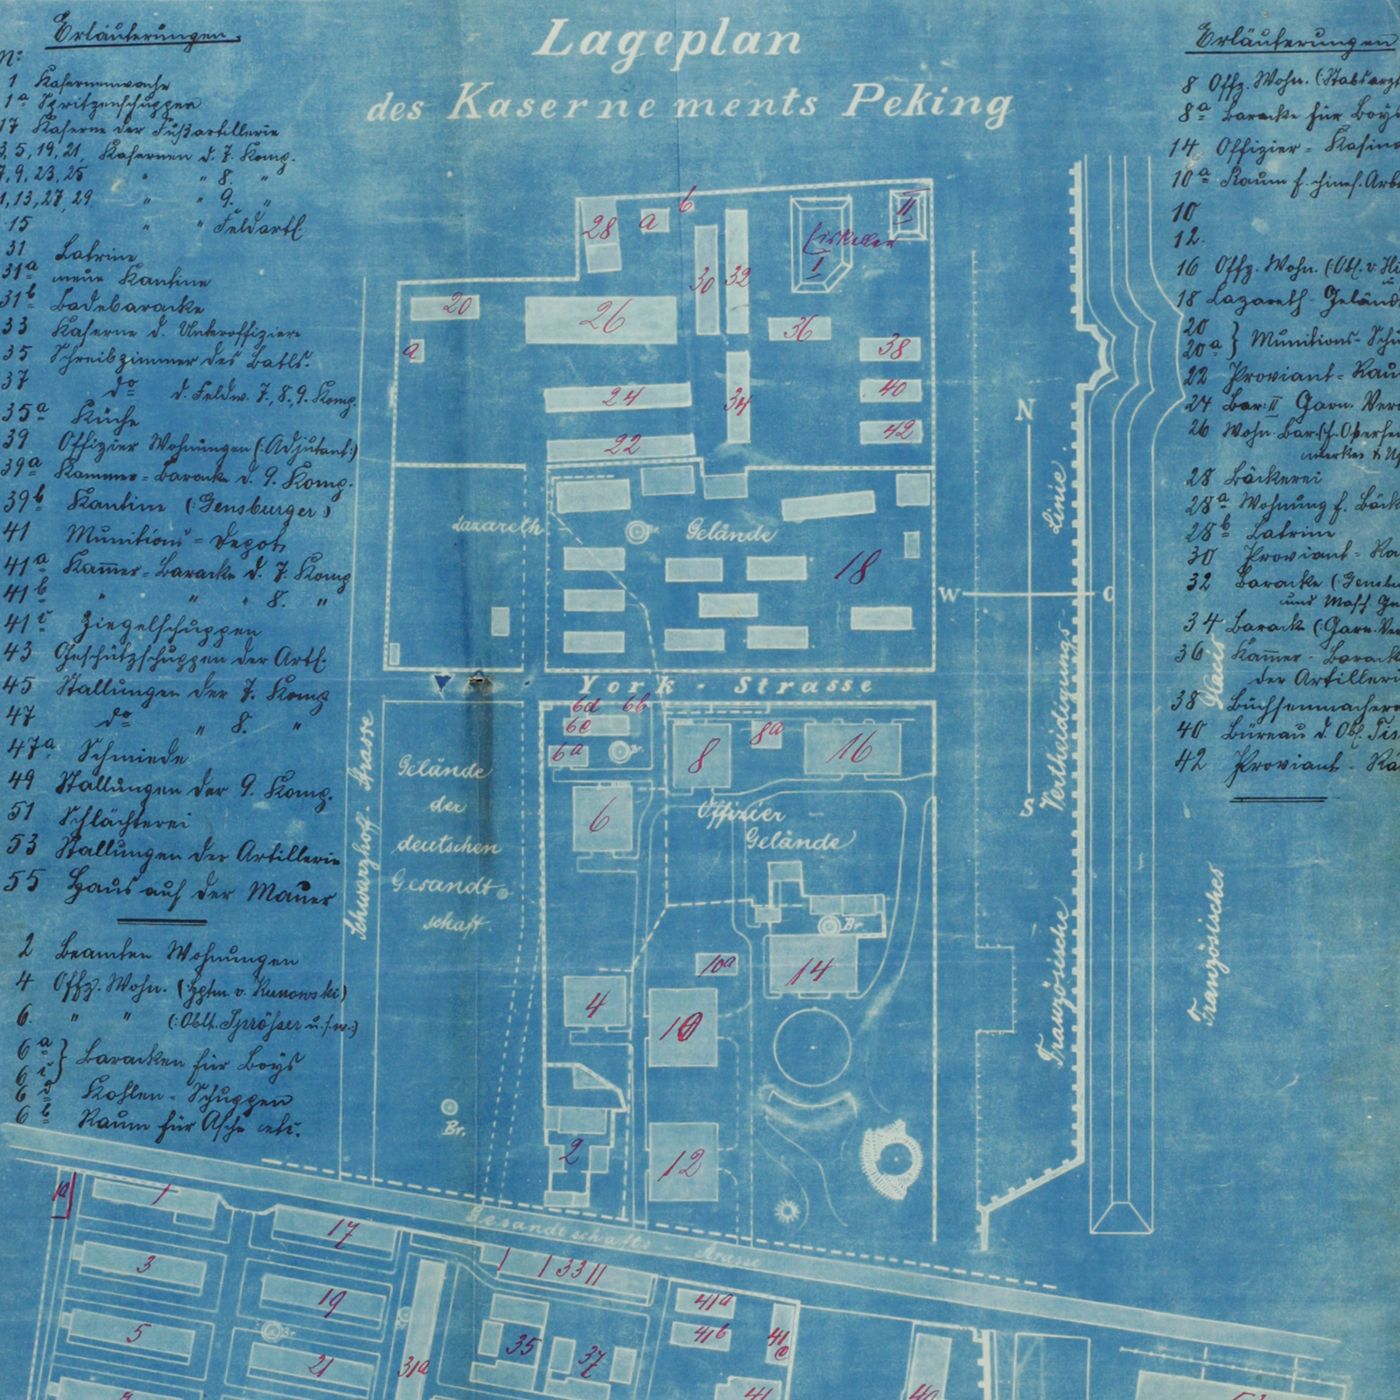 Lageplan
des Kasernements Peking
Erläuterungen.
Nº
1 Kasernenwache
1ª Spritzenschuppen
17 Kaserne der Fußartillerie
3, 5, 19, 21, Kasernen d. 7. Komp.
7, 9, 23, 25 " " 8. "
1, 13, 27, 29 " " 9. "
15 " " Feldartl.
31 Latrine
31ª neue Kantine
31b Badebaracke
33 Kaserne d. Unteroffiziere
35 Schreibzimmer des Batls.
37 do d. Feldw. 7., 8., 9. Komp.
35ª Küche
39 Offizier Wohnungen (:Adjutant:)
39ª Kammer-Baracke d. 9. Komp.
39b Kantine (:Gensburger:)
41 Munitions-Depot
41ª Kammer-Baracke d. 7. Komp
41b " " " 8. "
41c Ziegelschuppen
43 Geschützschuppen der Artl.
45 Stallungen der 7. Komp
47 do " 8. "
47ª Schmiede
49 Stallungen der 9. Komp.
51 Schlächterei
53 Stallungen der Artillerie
55 Haus auf der Mauer
2 Beamten Wohnungen
4 Offz. Wohn. (Hptm. v. Kunowski)
6. " " (:Oblt. Sprösser u.s.w.:)
6ª
6c } Baracken für Boys
6d Kohlen-Schuppen
6b Raum für Asche etc.
Erläuterungen
8 Offz. Wohn. (Stabsarzt
8ª Baracke für Boys
14 Offizier-Kasino
10ª Raum f. chines. Arb
10
12.
16 Offz. Wohn. (Obl. v.
18 Lazareth-Gelände
20
20ª } Munitions-Schu
22 Proviant-Rau
24 Bar. II Garn. Verw
26 Wohn. Bar.
28 Bäckerei
28ª Wohnung f. Bäck
28b Latrine
30 Proviant-Ra
32 Baracke (Gensbu
und Masch. Ge
34 Barack (Garn. Ver
36 Kammer-Barack
der Artilleri
38 Büchsenmachere
40 Bureau d. Obl.
42 Proviant-Rä
28 a b
30 32
I
II
20
26
36
38
a
24
34
40
42
22
N
W O
S
Lazareth Gelände
Br.
18
York-Strasse
6d 6b
6c
6a Br.
8 8a 16
6
Offizier
Gelände
Gelände
der
deutschen
Gesandt-
schaft.
Schwarzhoff-Strasse
Br.
14
10a
4 10
2 12
Br.
Gesandtschafts-Strasse
Französische Vertheidigungs Linie.
Französisches
1a 1
17
3
19
Br
5
21
31a
33
35
37
41a
41b
41c
41